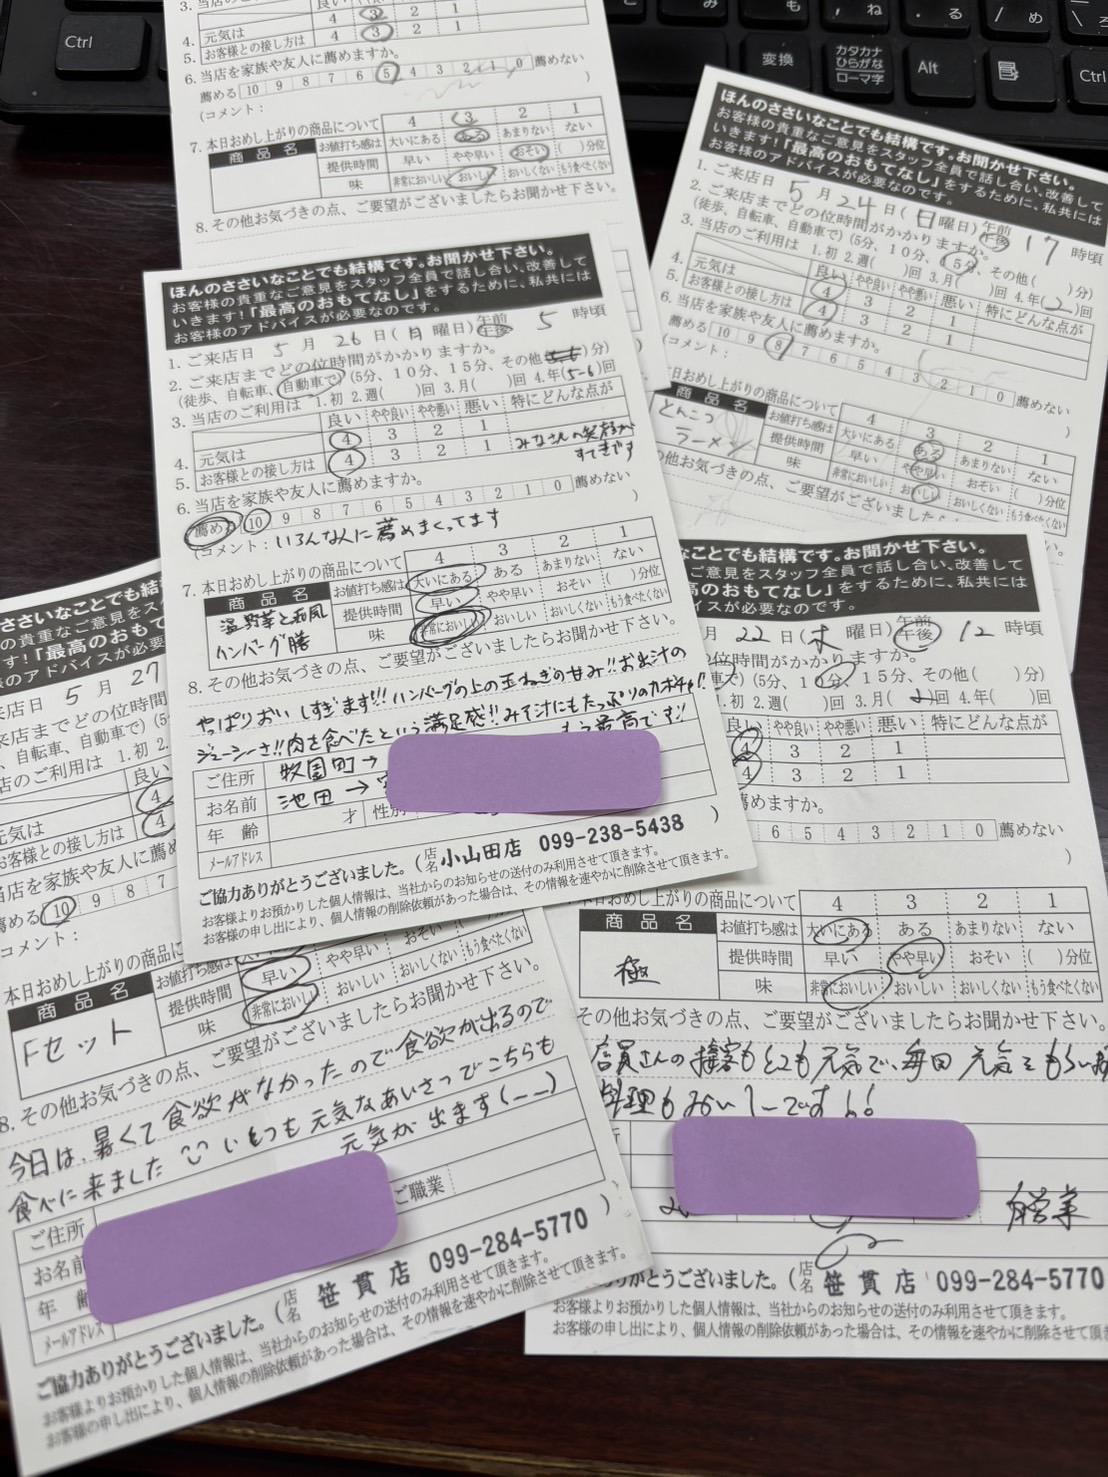 Ctrl
変換
カタカナ
ひらがな
ローマ字
Alt
Ctrl
良い
4 3 2 1
4. 元気は
5. お客様との接し方は 4 3 2 1
6. 当店を家族や友人に薦めますか。
薦める 10 9 8 7 6 5 4 3 2 1 0 薦めない
(コメント： )
7. 本日お召し上がりの商品について 4 3 2 1
商品名 お値打ち感は 大いにある ある あまりない ない
提供時間 早い やや早い おそい ( )分位
味 非常においしい おいしい おいしくない もう食べたくない
8. その他お気づきの点、ご要望がございましたらお聞かせ下さい。
ほんのささいなことでも結構です。お聞かせ下さい。
お客様の貴重なご意見をスタッフ全員で話し合い、改善して
いきます！「最高のおもてなし」をするために、私共には
お客様のアドバイスが必要なのです。
1. ご来店日 5月24日(日曜日) 午前 午後 17時頃
2. ご来店までどの位時間がかかりますか。
(徒歩、自転車、自動車で) (5分、10分、15分、その他( )分)
3. 当店のご利用は 1.初 2.週( )回 3.月( )回 4.年(2)回
良い やや良い やや悪い 悪い 特にどんな点が
4. 元気は 4 3 2 1
5. お客様との接し方は 4 3 2 1
6. 当店を家族や友人に薦めますか。
薦める 10 9 8 7 6 5 4 3 2 1 0 薦めない
(コメント： )
本日おめし上がりの商品について 4 3 2 1
商品名 お値打ち感は 大いにある ある あまりない ない
とんこつ
ラーメン
提供時間 早い やや早い おそい ( )分位
味 非常においしい おいしい おいしくない もう食べたくない
の他お気づきの点、ご要望がございましたら
ほんのささいなことでも結構です。お聞かせ下さい。
お客様の貴重なご意見をスタッフ全員で話し合い、改善して
いきます！「最高のおもてなし」をするために、私共には
お客様のアドバイスが必要なのです。
1. ご来店日 5月26日(月曜日) 午前 午後 5時頃
2. ご来店までどの位時間がかかりますか。
(徒歩、自転車、自動車で) (5分、10分、15分、その他 分)
3. 当店のご利用は 1.初 2.週( )回 3.月( )回 4.年(5-6)回
良い やや良い やや悪い 悪い 特にどんな点が
4. 元気は 4 3 2 1 みなさんの笑顔が
5. お客様との接し方は 4 3 2 1 すてきです
6. 当店を家族や友人に薦めますか。
薦める 10 9 8 7 6 5 4 3 2 1 0 薦めない
(コメント：いろんな人に薦めまくってます )
7. 本日おめし上がりの商品について 4 3 2 1
商品名 お値打ち感は 大いにある ある あまりない ない
温野菜と和風
ハンバーグ膳
提供時間 早い やや早い おそい ( )分位
味 非常においしい おいしい おいしくない もう食べたくない
8. その他お気づきの点、ご要望がございましたらお聞かせ下さい。
やっぱりおいしすぎます!!! ハンバーグの上の玉ねぎの甘み!! お出汁の
ジューシーさ!! 肉を食べたという満足感!! みそ汁にもたっぷりのカボチャ!!
もう最高です!!
ご住所 牧園町→
お名前 池田→
年齢 才 性別
メールアドレス
ご協力ありがとうございました。(店名 小山田店 099-238-5438 )
お客様よりお預かりした個人情報は、当社からのお知らせの送付のみ利用させて頂きます。
お客様の申し出により、個人情報の削除依頼があった場合は、その情報を速やかに削除させて頂きます。
なことでも結構です。お聞かせ下さい。
ご意見をスタッフ全員で話し合い、改善して
高のおもてなし」をするために、私共には
イスが必要なのです。
月22日(木曜日) 午前 午後 12時頃
位時間がかかりますか。
車で) (5分、10分、15分、その他( )分)
.初 2.週( )回 3.月( )回 4.年( )回
良い やや良い やや悪い 悪い 特にどんな点が
4 3 2 1
4 3 2 1
薦めますか。
6 5 4 3 2 1 0 薦めない
)
本日おめし上がりの商品について 4 3 2 1
商品名 お値打ち感は 大いにある ある あまりない ない
極
提供時間 早い やや早い おそい ( )分位
味 非常においしい おいしい おいしくない もう食べたくない
その他お気づきの点、ご要望がございましたらお聞かせ下さい。
店員さんの接客もとても元気で、毎回元気をもらい
料理もおいしーです!!
自営業
ありがとうございました。(店名 笹貫店 099-284-5770
お客様よりお預かりした個人情報は、当社からのお知らせの送付のみ利用させて頂きます。
お客様の申し出により、個人情報の削除依頼があった場合は、その情報を速やかに削除させて頂
ささいなことでも結
の貴重なご意見をス
す！「最高のおもて
のアドバイスが必要
来店日 5月27
、自転車、自動車で)
店のご利用は 1.初 2.
良い
元気は 4
お客様との接し方は 4
当店を家族や友人に薦め
薦める 10 9 8 7
コメント：
本日おめし上がりの商品について
商品名 お値打ち感は
Fセット
提供時間 早い やや早い おそい ( )分位
味 非常においしい おいしい おいしくない もう食べたくない
8. その他お気づきの点、ご要望がございましたらお聞かせ下さい。
今日は、暑くて食欲がなかったので食欲が出るので
食べに来ました いつも元気なあいさつでこちらも
元気が出ます(—)
ご住所
お名前
年齢 ご職業
メールアドレス
ご協力ありがとうございました。(店名 笹貫店 099-284-5770 )
お客様よりお預かりした個人情報は、当社からのお知らせの送付のみ利用させて頂きます。
お客様の申し出により、個人情報の削除依頼があった場合は、その情報を速やかに削除させて頂きます。